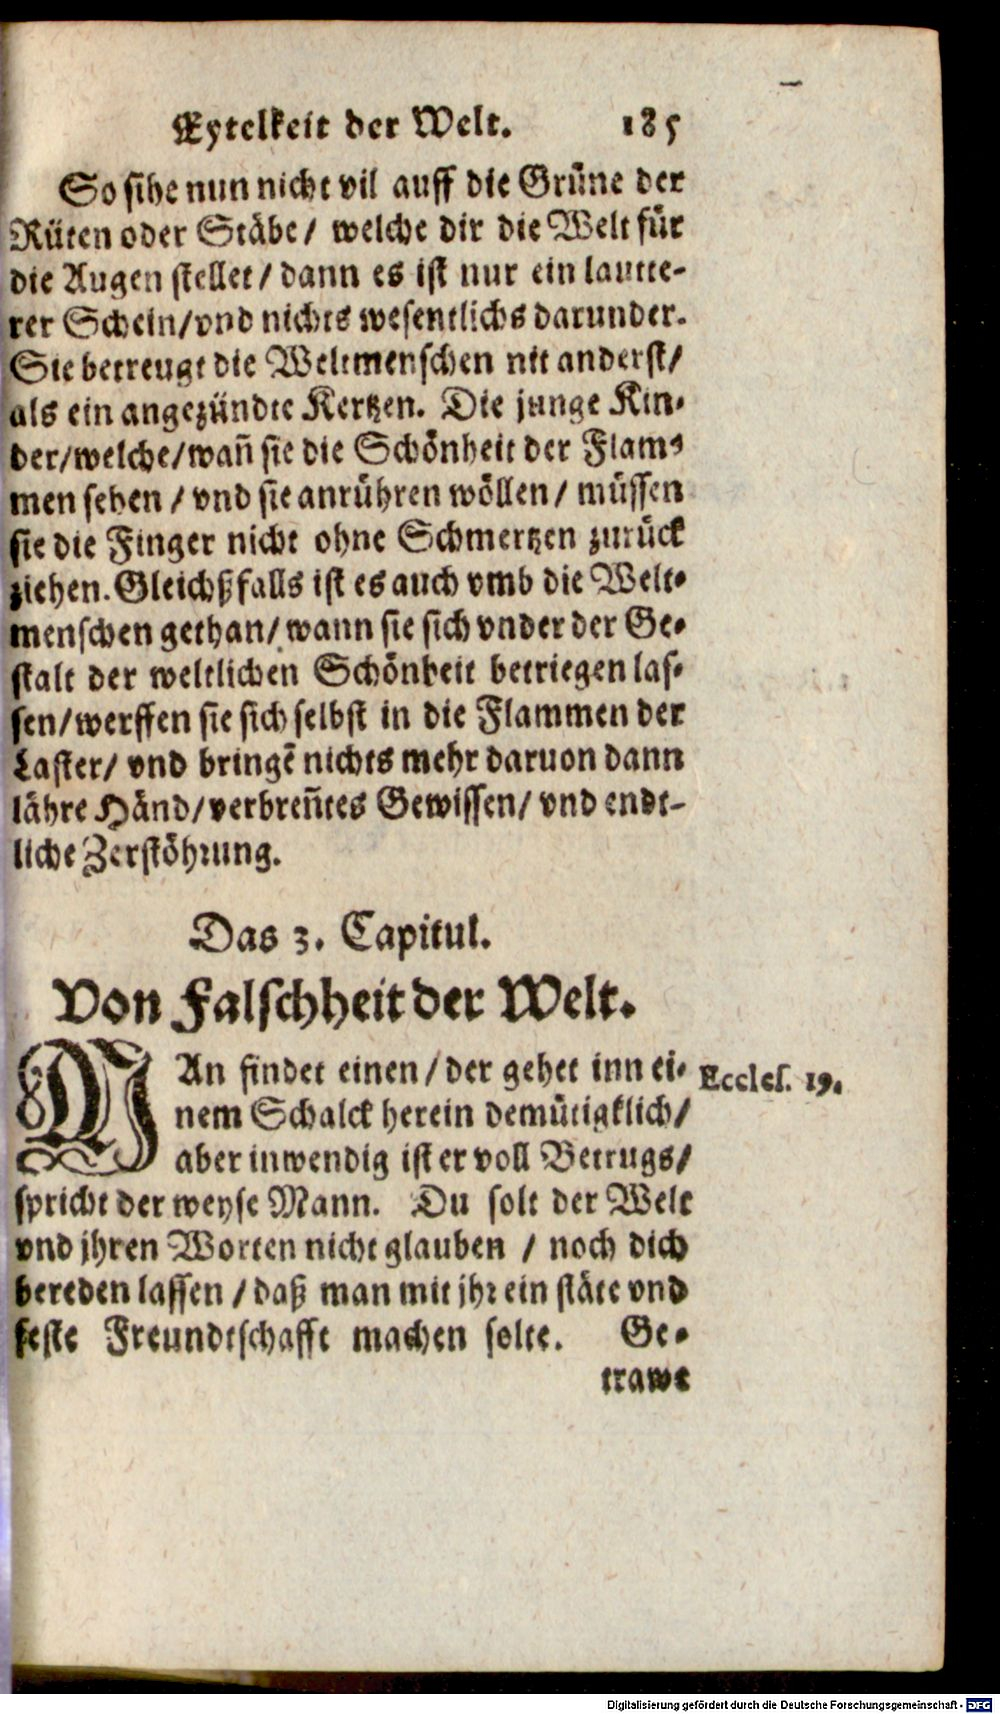 Eytelkeit der Welt. 185
So sihe nun nicht vil auff die Grüne der
Rüten oder Stäbe/ welche dir die Welt für
die Augen stellet/ dann es ist nur ein lautte-
rer Schein/vnd nichts wesentlichs darunder.
Sie betreugt die Weltmenschen nit anderst/
als ein angezündte Kertzen. Die junge Kin-
der/welche/wañ sie die Schönheit der Flam-
men sehen / vnd sie anrühren wöllen/ müssen
sie die Finger nicht ohne Schmertzen zurück
ziehen. Gleichßfalls ist es auch vmb die Welt-
menschen gethan/ wann sie sich vnder der Ge-
stalt der weltlichen Schönheit betriegen las-
sen/werffen sie sich selbst in die Flammen der
Laster/ vnd bringẽ nichts mehr daruon dann
lähre Händ/verbreñtes Gewissen/ vnd endt-
liche Zerstöhrung.
Das 3. Capitul.
Von Falschheit der Welt.
MAn findet einen / der gehet inn ei-
nem Schalck herein demütigklich/
aber inwendig ist er voll Betrugs/
spricht der weyse Mann. Du solt der Welt
vnd jhren Worten nicht glauben / noch dich
bereden lassen / daß man mit jhr ein stäte vnd
feste Freundtschafft machen solte. Ge-
trawe
Eccles. 19.
Digitalisierung gefördert durch die Deutsche Forschungsgemeinschaft - DFG